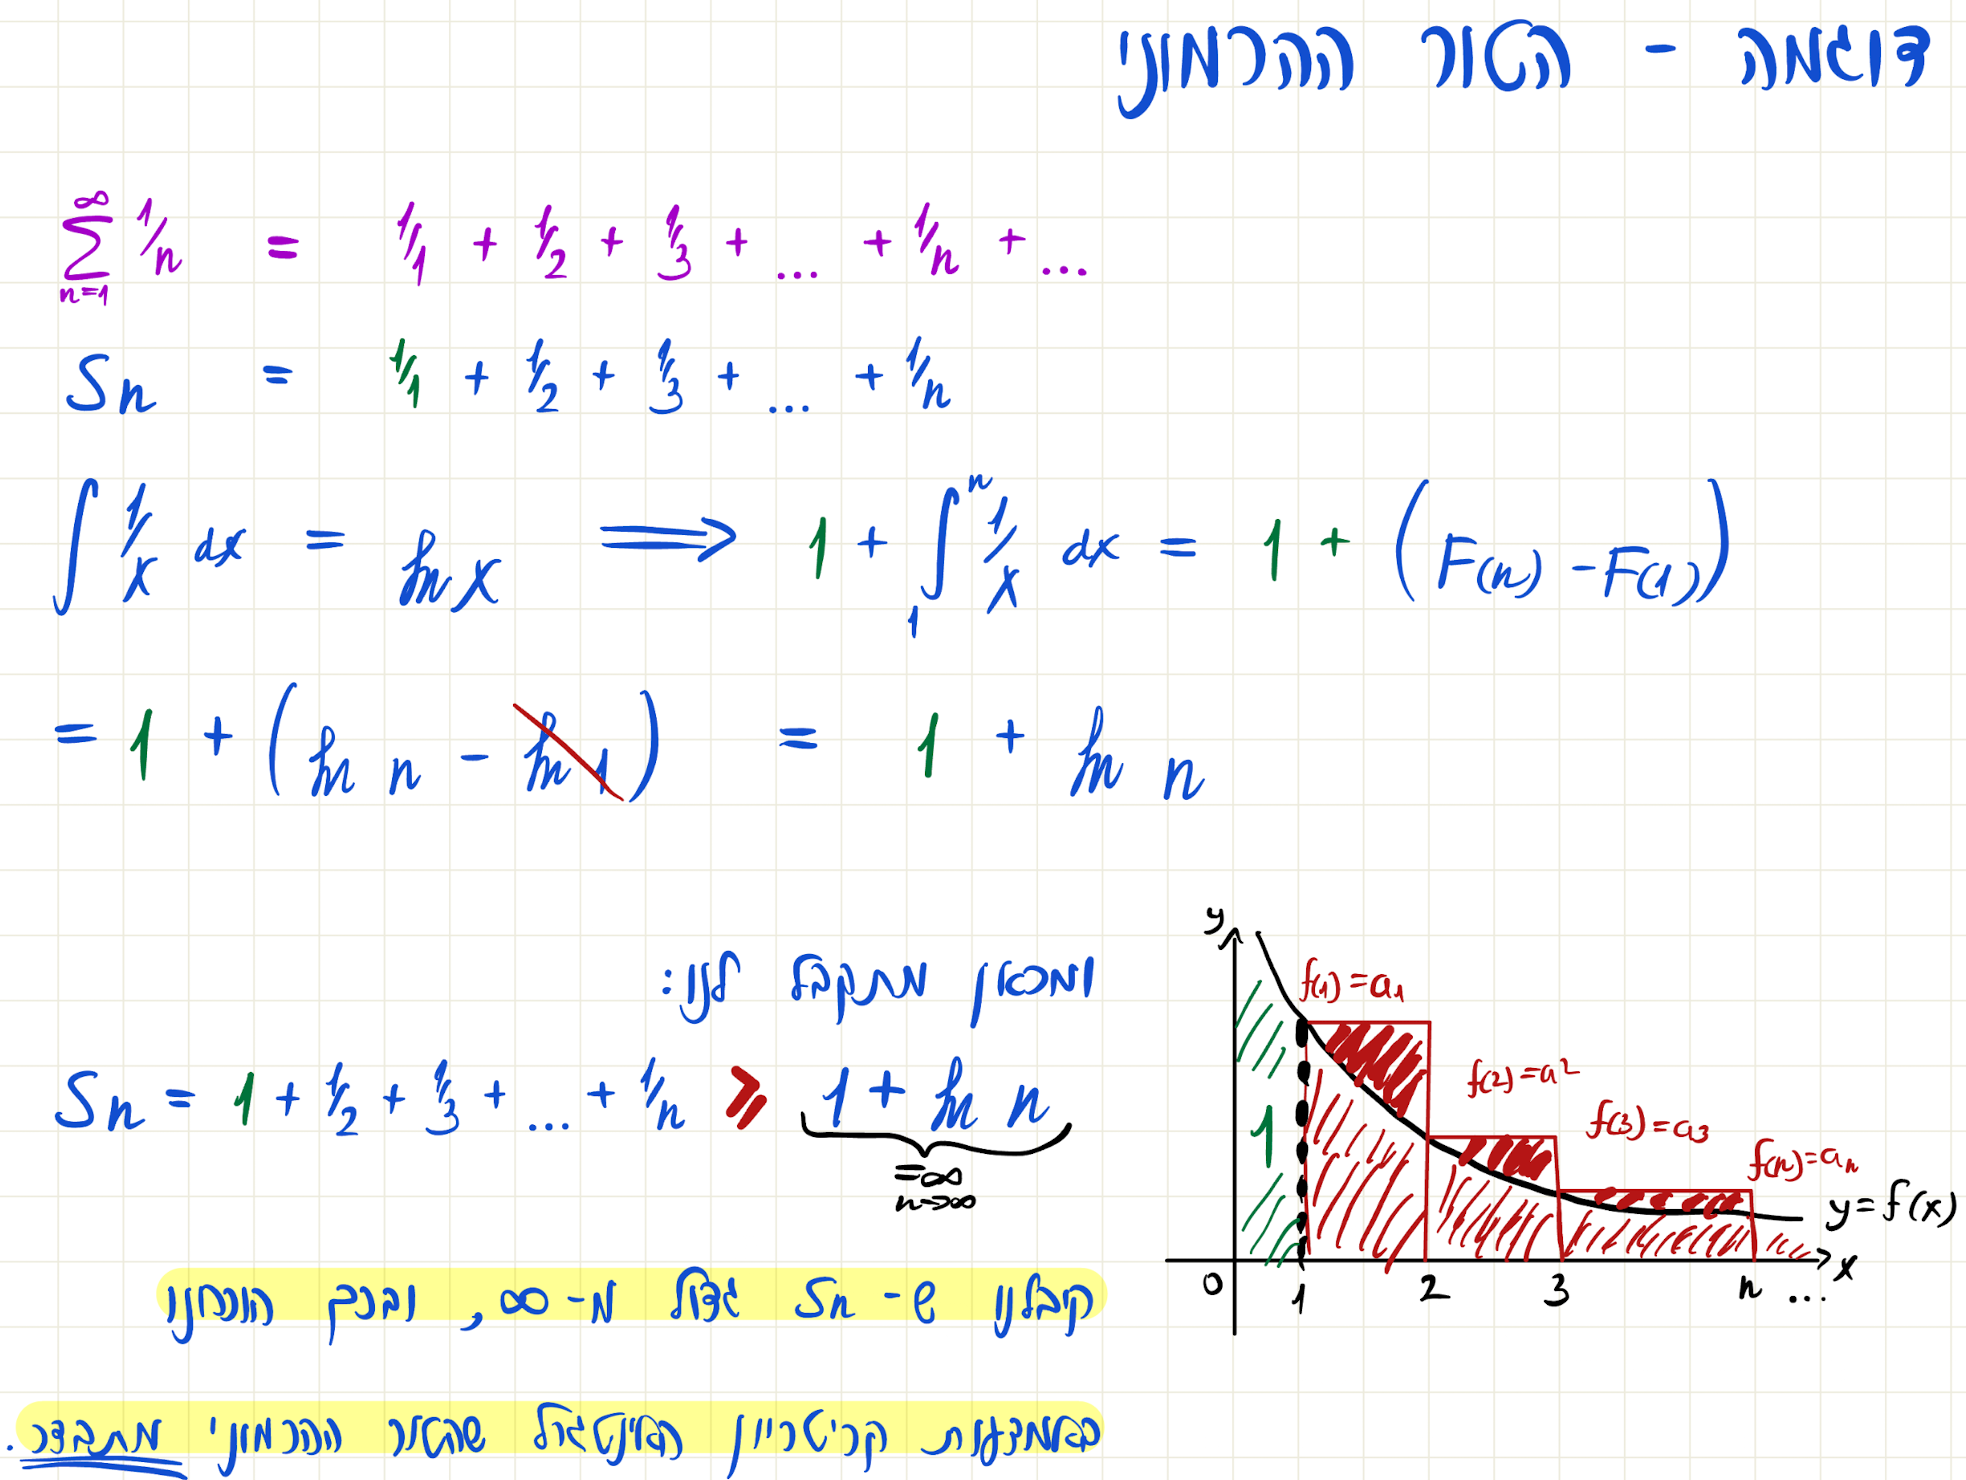 דוגמה - הטור ההרמוני
∞∑n=1 1/n = 1/1 + 1/2 + 1/3 + ... + 1/n + ...
Sn = 1/1 + 1/2 + 1/3 + ... + 1/n
∫ 1/x dx = ln x ⟹ 1 + ∫₁ⁿ 1/x dx = 1 + (F(n) - F(1))
= 1 + (ln n - ln 1) = 1 + ln n
ומכאן מתקבל לנו:
Sn = 1 + 1/2 + 1/3 + ... + 1/n ⩾ 1 + ln n
=∞
n→∞
קיבלנו ש- Sn גדול מ-∞, ובכך הוכחנו
באמצעות קריטריון האינטגרל שהטור ההרמוני מתבדר.
y
f(1) = a₁
f(2) = a²
f(3) = a₃
f(n) = aₙ
1
y = f(x)
x
0 1 2 3 n ...